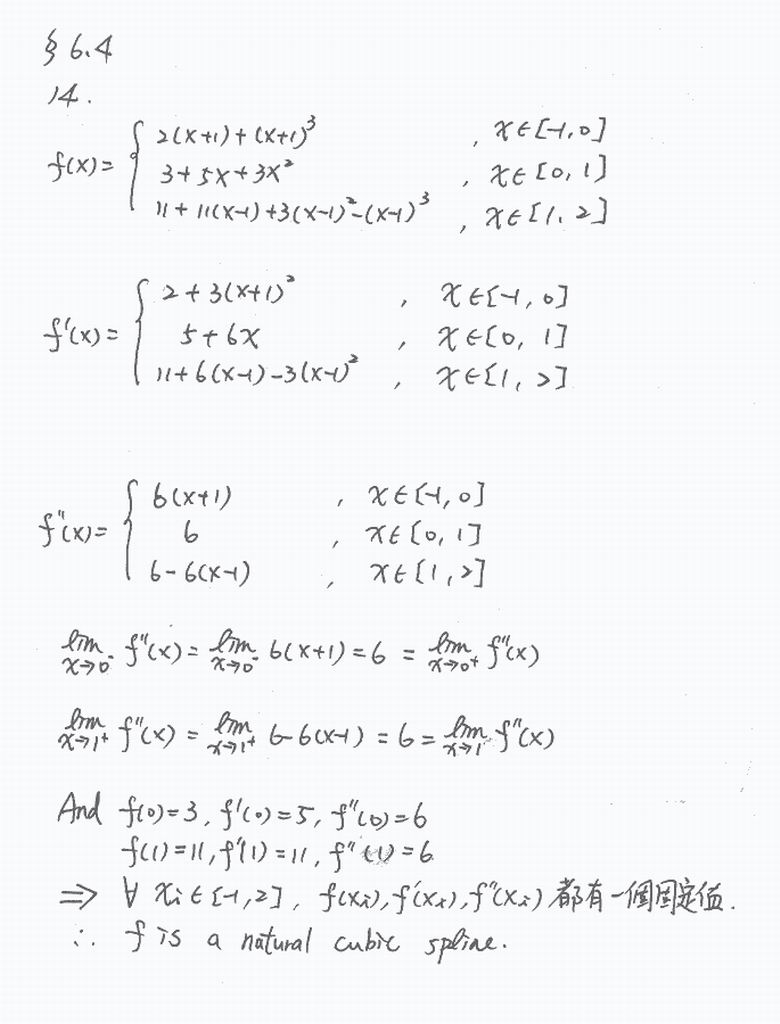 § 6.4
14.
f(x) = { 2(x+1) + (x+1)³ , x∈[-1, 0]
3 + 5x + 3x² , x∈[0, 1]
11 + 11(x-1) + 3(x-1)² - (x-1)³ , x∈[1, 2]
f'(x) = { 2 + 3(x+1)² , x∈[-1, 0]
5 + 6x , x∈[0, 1]
11 + 6(x-1) - 3(x-1)² , x∈[1, 2]
f''(x) = { 6(x+1) , x∈[-1, 0]
6 , x∈[0, 1]
6 - 6(x-1) , x∈[1, 2]
lim x→0⁻ f''(x) = lim x→0⁻ 6(x+1) = 6 = lim x→0⁺ f''(x)
lim x→1⁺ f''(x) = lim x→1⁺ 6-6(x-1) = 6 = lim x→1⁻ f''(x)
And f(0)=3, f'(0)=5, f''(0)=6
f(1)=11, f'(1)=11, f''(1)=6
⇒ ∀ xᵢ∈[-1, 2], f(xᵢ), f'(xᵢ), f''(xᵢ) 都有一個固定值.
∴ f is a natural cubic spline.